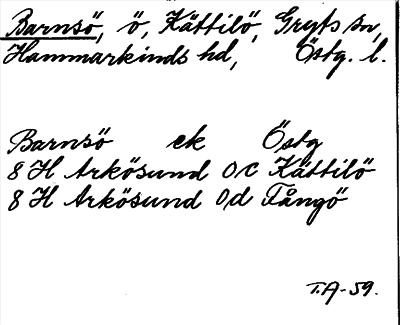 Barnsö, ö, Kättilö, Gryts sn,
Hammarkinds hd, Östg. l.
Barnsö ek Östg
8 H Arkösund 0c Kättilö
8 H Arkösund 0d Fångö
T.A-59.